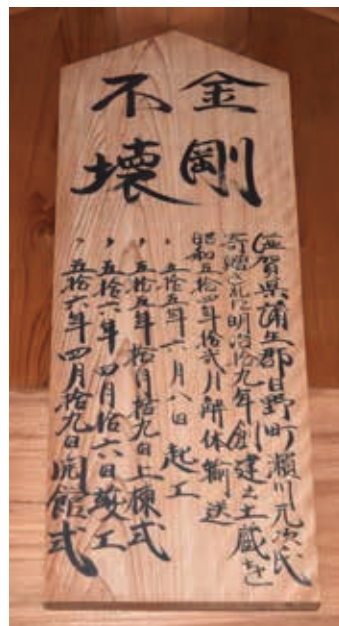 金剛
不壊
滋賀県蒲生郡日野町 瀬川元次氏
寄贈された明治拾九年創建之土蔵を
昭和五拾四年拾弐月解体輸送
〃 五拾五年六月八日起工
〃 五拾五年拾月拾九日上棟式
〃 五拾六年四月拾六日竣工
〃 五拾六年四月拾九日開館式